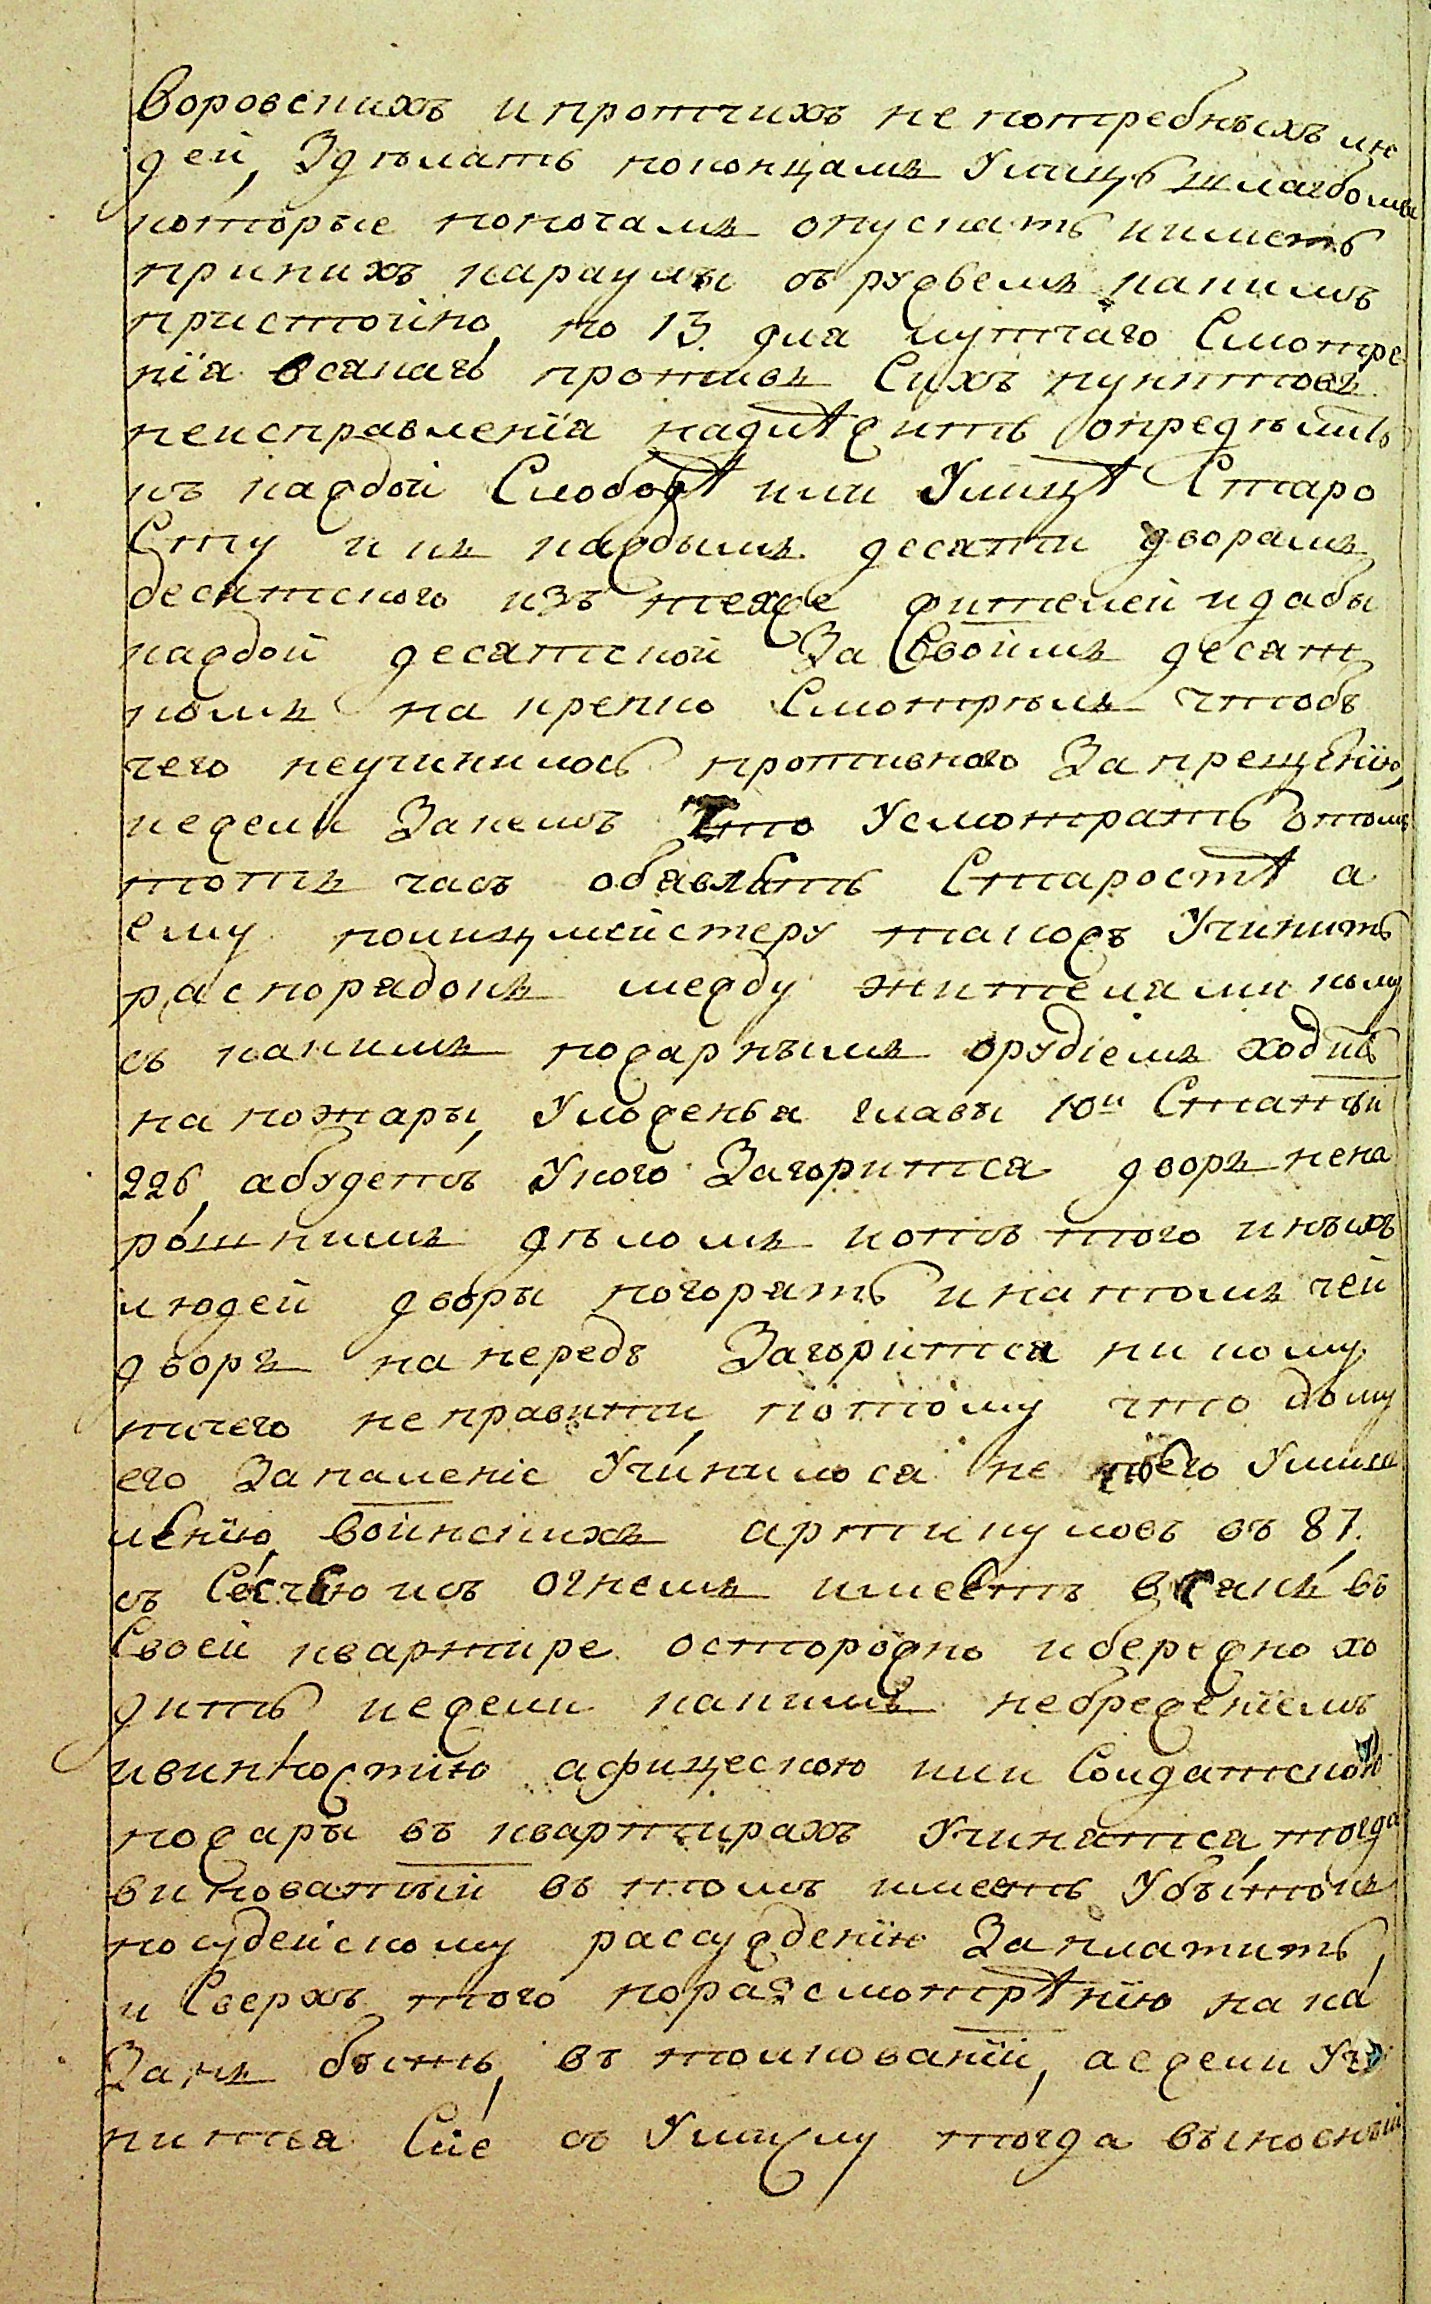 Воровскихъ и протчихъ не потребныхъ лю
дей, Здѣлать поконцамъ Улицъ шлагбоумы
которые поночамъ опускать ииметь
принихъ караулы съ ружьемъ какимъ
пристойно, по 13. для лутчаго Смотре
нїя всякагѡ противъ Сихъ пунктовъ
неисправленїя надлѣжитъ опредѣлить
къ каждой Слободѣ или Улицѣ Старо
Сту и къ каждымъ десяти дворамъ
десятского изъ техже жителей идабы
каждой десятской За Своимъ десят
комъ на крепко Смотрѣлъ чтобъ
чего неучинилось противного Запрещенїю,
иежели Закемъ Что Усмотрятъ отомъ
тотъ часъ обявлять Старостѣ а
ему полицмейстеру такожъ Учинить
распорядокъ между жителями кому
съ какимъ пожарнымъ орудїемъ ходить
на пожары, Уложенья главы 10и Статьи
226, абудетъ Укого Загорится дворъ нена
рошнимъ дѣломъ иотъ того иныхъ
людей дворы погорятъ инатомъ чей
дворъ на передъ Загорится никому
ничего неправити, потому что дому
его Запаленїе Учинилося не поего Умыш
ленїю, воинскихъ артикуловъ въ 87.
съ Свечею исъ огнемъ имеетъ всякъ въ
Своей квартире осторожно ибережно хо
дить, иежели какимъ небрежениемъ
ивинностїю афицескою или Солдатскою
пожары въ квартирахъ Учинятся, тогда
виноватый въ томъ имеетъ Убытокъ
посудейскому разсужденїю Заплатить,
и Сверхъ того поразсмотрѣнїю нака
Занъ быть, въ толкованїи, аежели Учи
нится Сїе съ Умыслу тогда выновный